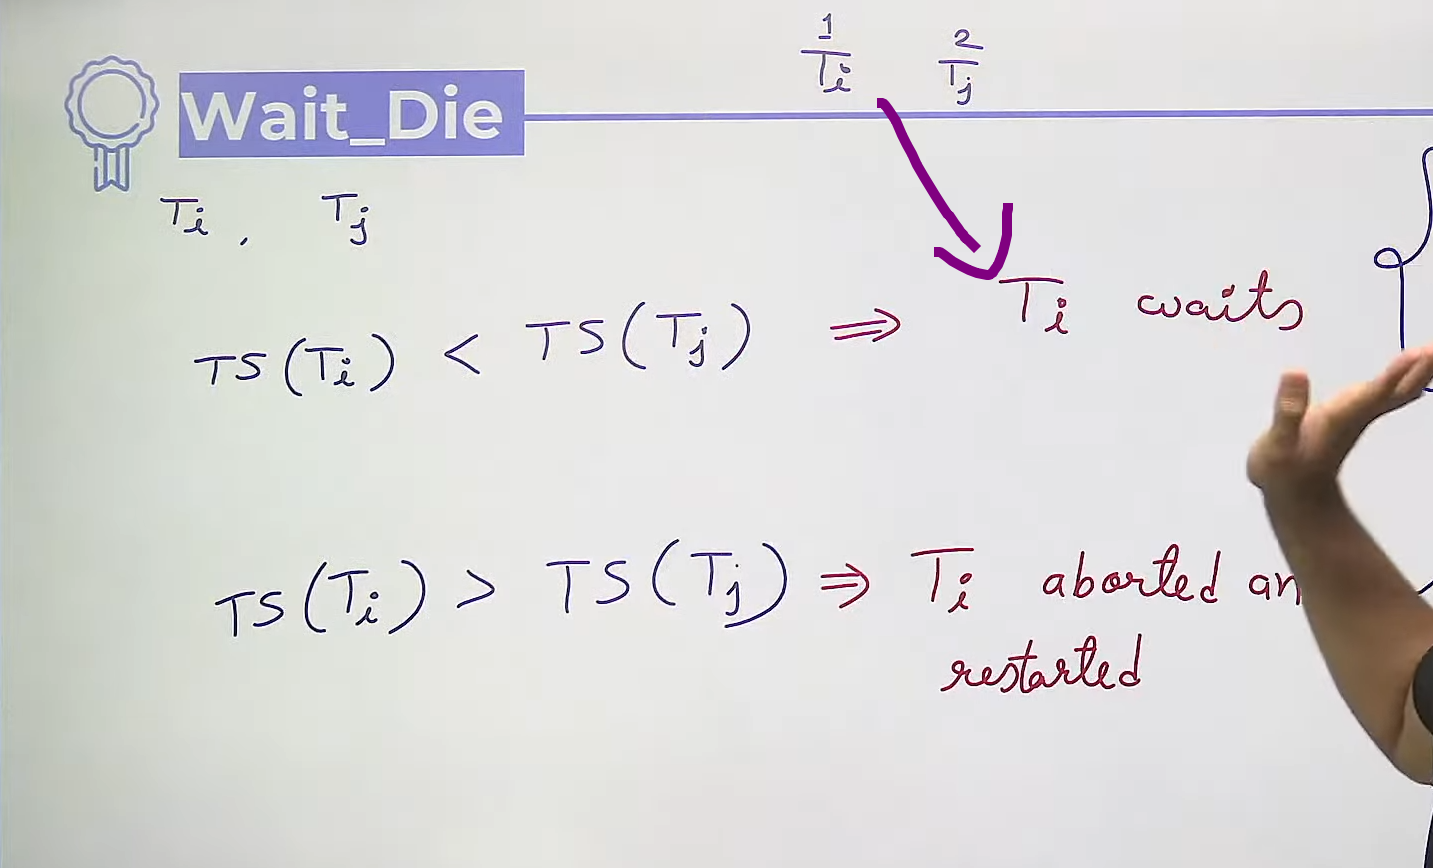 1 2
Ti Tj
Wait_Die
Ti , Tj
TS(Ti) < TS(Tj) ⇒ Ti waits
TS(Ti) > TS(Tj) ⇒ Ti aborted an
restarted